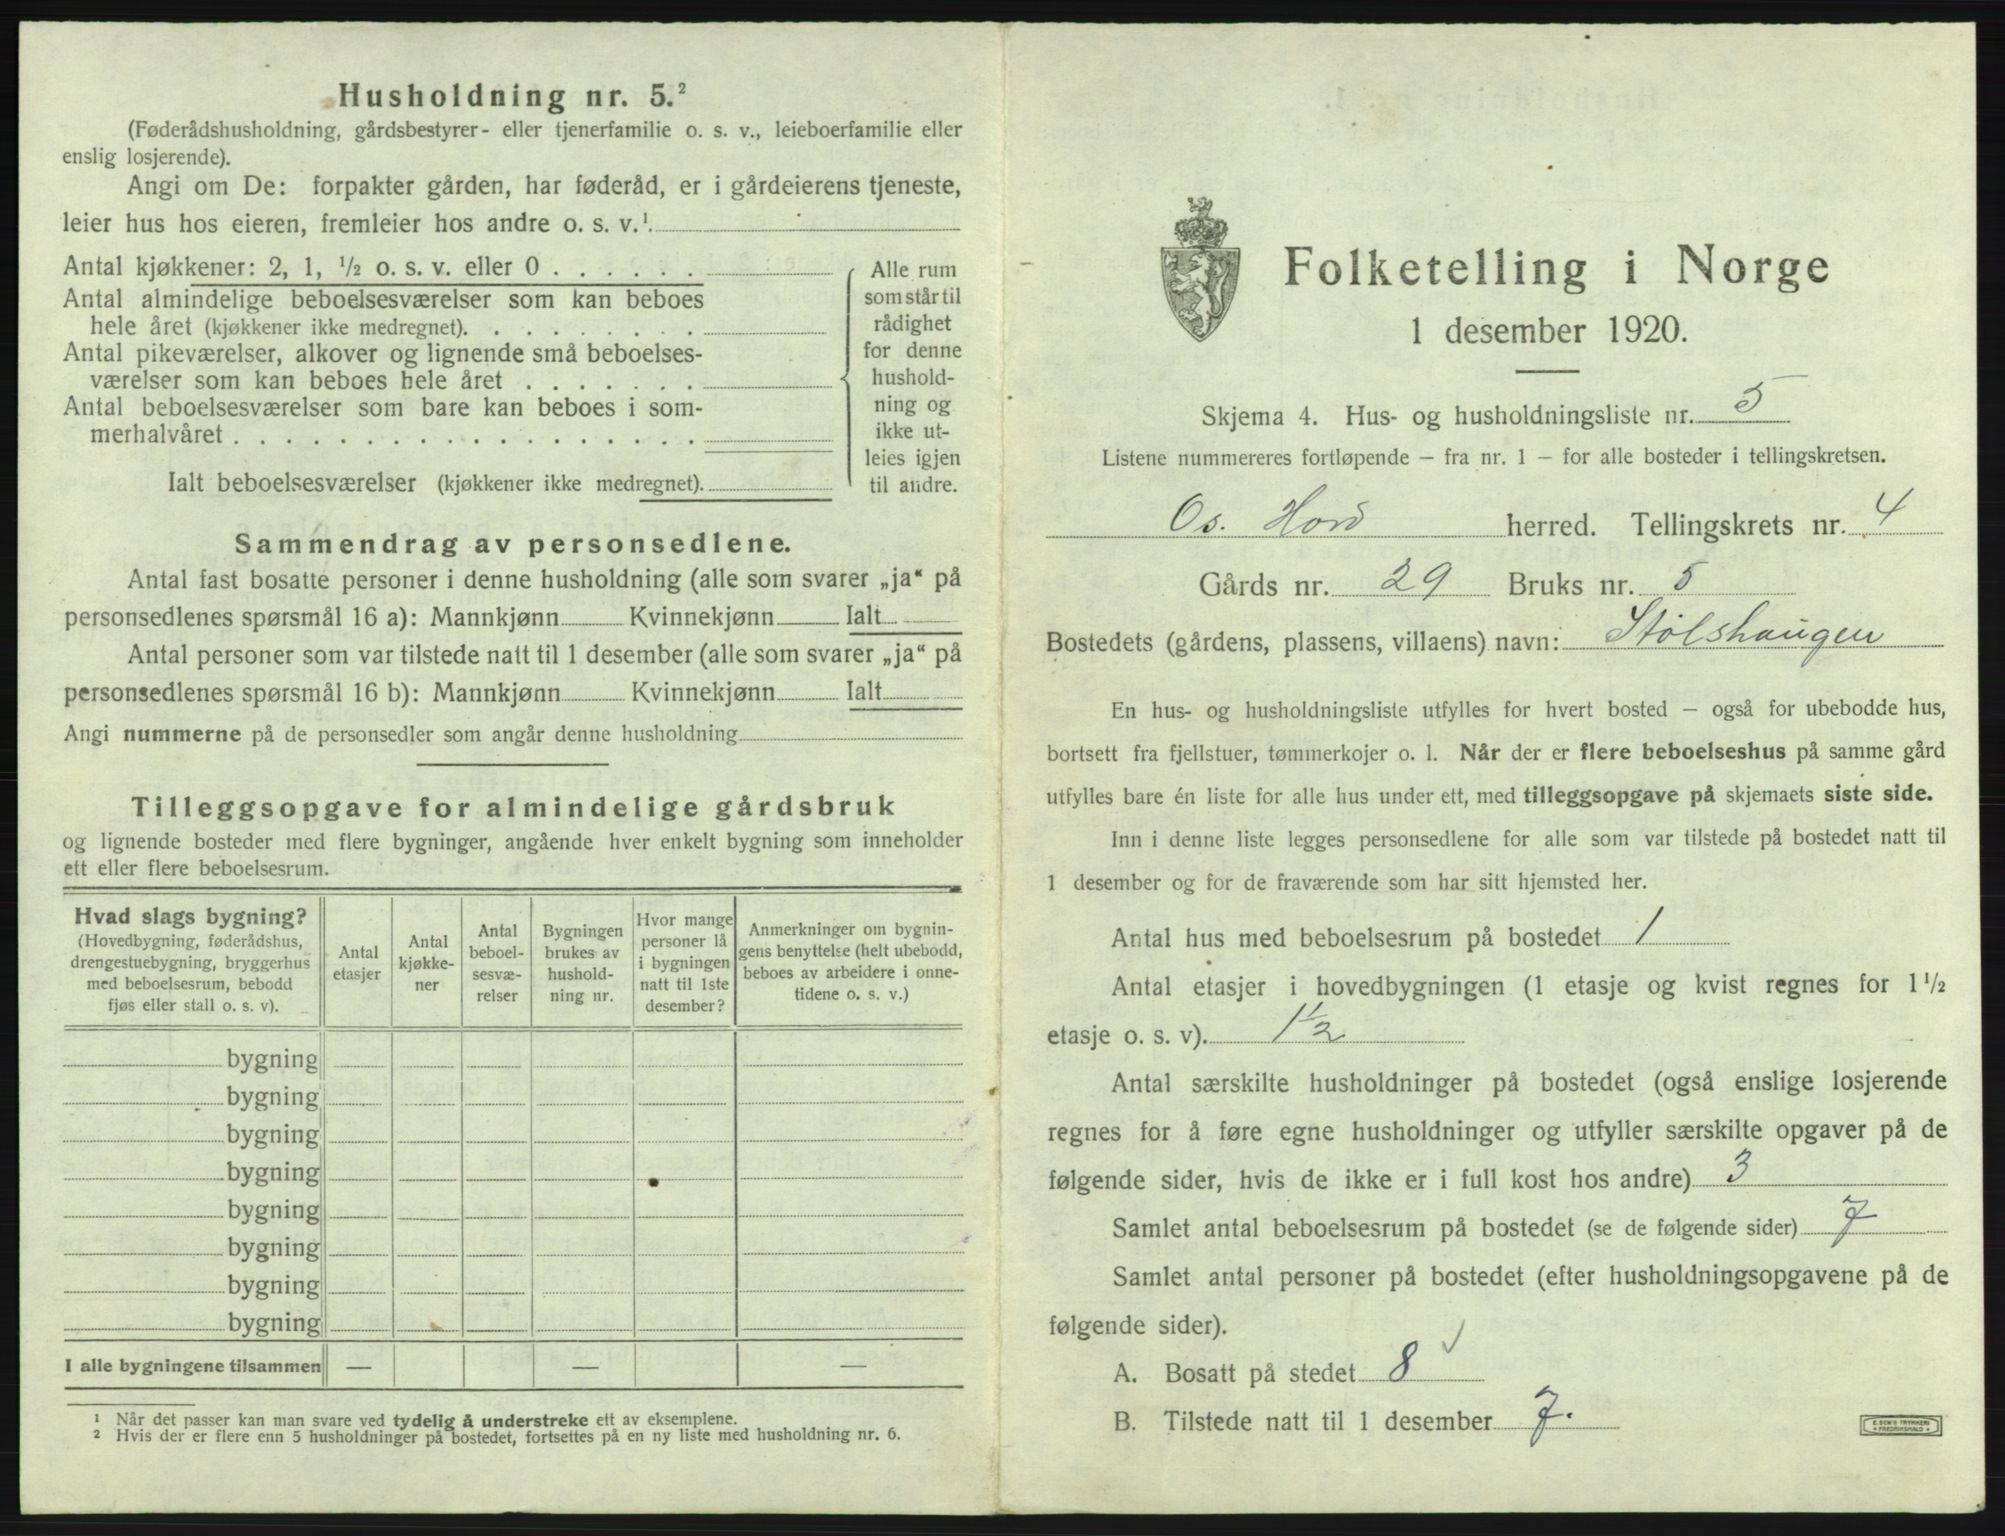 Husholdning nr. 5.²
(Føderådshusholdning, gårdsbestyrer- eller tjenerfamilie o. s. v., leieboerfamilie eller
enslig losjerende).
Angi om De: forpakter gården, har føderåd, er i gårdeierens tjeneste,
leier hus hos eieren, fremleier hos andre o. s. v.¹.
Antal kjøkkener: 2, 1, ½ o. s. v. eller 0 . . . . . .
Antal almindelige beboelsesværelser som kan beboes
hele året (kjøkkener ikke medregnet). . . . . . . . .
Antal pikeværelser, alkover og lignende små beboelses-
værelser som kan beboes hele året . . . . . . .
Antal beboelsesværelser som bare kan beboes i som-
merhalvåret . . . . . . . . . . . . . . . . . .
Ialt beboelsesværelser (kjøkkener ikke medregnet).
Alle rum
som står til
rådighet
for denne
hushold-
ning og
ikke ut-
leies igjen
til andre.
Sammendrag av personsedlene.
Antal fast bosatte personer i denne husholdning (alle som svarer „ja“ på
personsedlenes spørsmål 16 a): Mannkjønn Kvinnekjønn Ialt
Antal personer som var tilstede natt til 1 desember (alle som svarer „ja“ på
personsedlenes spørsmål 16 b): Mannkjønn Kvinnekjønn Ialt
Angi nummerne på de personsedler som angår denne husholdning
Tilleggsopgave for almindelige gårdsbruk
og lignende bosteder med flere bygninger, angående hver enkelt bygning som inneholder
ett eller flere beboelsesrum.
Hvad slags bygning?
(Hovedbygning, føderådshus,
drengestuebygning, bryggerhus
med beboelsesrum, bebodd
fjøs eller stall o. s. v).
Antal
etasjer
Antal
kjøkke-
ner
Antal
beboel-
sesvæ-
relser
Bygningen
brukes av
hushold-
ning nr.
Hvor mange
personer lå
i bygningen
natt til 1ste
desember?
Anmerkninger om bygnin-
gens benyttelse (helt ubebodd,
beboes av arbeidere i onne-
tidene o. s. v.)
bygning
bygning
bygning
bygning
bygning
bygning
bygning
bygning
I alle bygningene tilsammen — — —
¹ Når det passer kan man svare ved tydelig å understreke ett av eksemplene.
² Hvis der er flere enn 5 husholdninger på bostedet, fortsettes på en ny liste med husholdning nr. 6.
Folketelling i Norge
1 desember 1920.
Skjema 4. Hus- og husholdningsliste nr. 5
Listene nummereres fortløpende – fra nr. 1 – for alle bosteder i tellingskretsen.
Os. Hord herred. Tellingskrets nr. 4
Gårds nr. 29 Bruks nr. 5
Bostedets (gårdens, plassens, villaens) navn: Stølshaugen
En hus- og husholdningsliste utfylles for hvert bosted – også for ubebodde hus,
bortsett fra fjellstuer, tømmerkojer o. l. Når der er flere beboelseshus på samme gård
utfylles bare én liste for alle hus under ett, med tilleggsopgave på skjemaets siste side.
Inn i denne liste legges personsedlene for alle som var tilstede på bostedet natt til
1 desember og for de fraværende som har sitt hjemsted her.
Antal hus med beboelsesrum på bostedet 1
Antal etasjer i hovedbygningen (1 etasje og kvist regnes for 1½
etasje o. s. v). 1½
Antal særskilte husholdninger på bostedet (også enslige losjerende
regnes for å føre egne husholdninger og utfyller særskilte opgaver på de
følgende sider, hvis de ikke er i full kost hos andre) 3
Samlet antal beboelsesrum på bostedet (se de følgende sider) 7
Samlet antal personer på bostedet (efter husholdningsopgavene på de
følgende sider).
A. Bosatt på stedet 8 ✓
B. Tilstede natt til 1 desember 7.
E. SEM'S TRYKKERI
• FREDRIKSHALD •